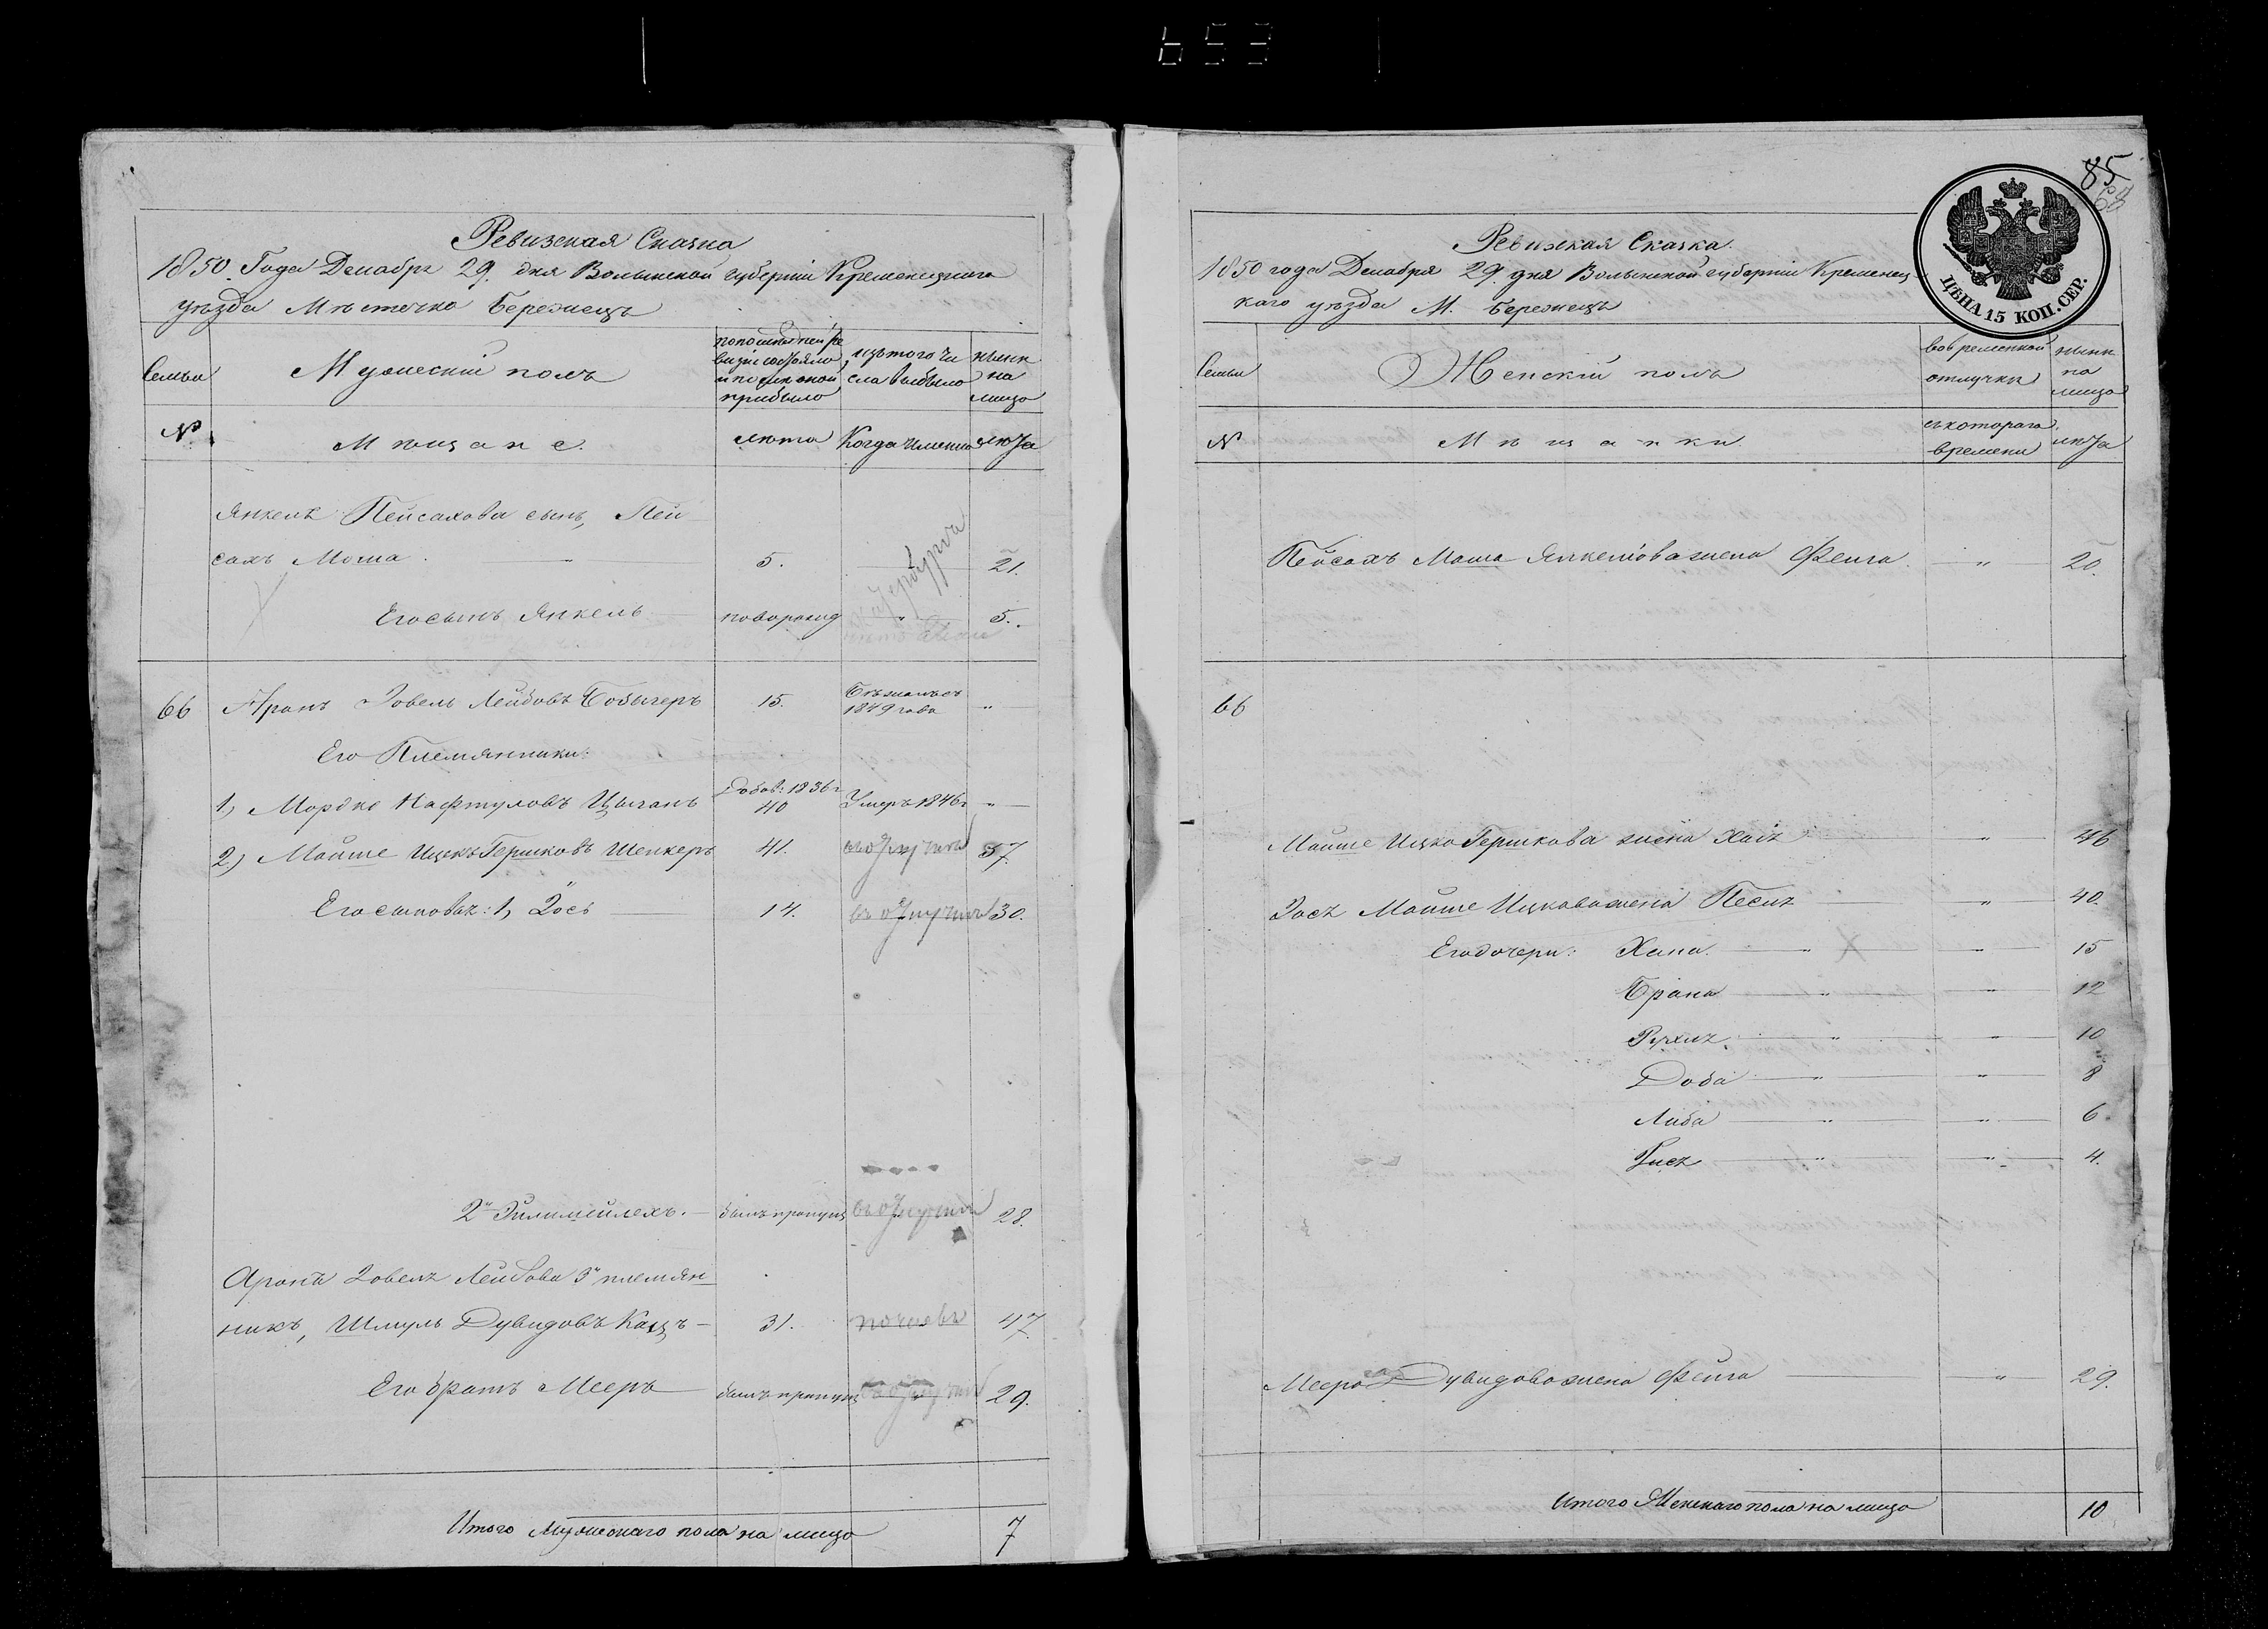 653
Ревизская Сказка
1850. Года Декабря 29. дня Волынской губерніи Кременецкаго
уѣзда Мѣстечка Бережецъ
Семьи
Мужескій полъ
по последней ре
визіи состояло
и после оной
прибыло
изъ того чи
сла выбыло
нынѣ
на
лицо
№.
Мѣщане.
лѣта
Когда именно
лѣта
Янкеля Пейсахова сынъ, Пей
сахъ Моша.
5.
21.
Его сынъ Янкель
новорожд
"
5.
66
Аронъ Зовель Лейбовъ
15.
Бѣжалъ съ
1849 года
"
Его Племянники:
1, Мордко Нафтуловъ Цыганъ
Добав: 1836 г
40
Умеръ 1846 г
"
2, Мойше Ицекъ Гершковъ Шенкеръ
41.
въ отлучкѣ
57.
Его сыновья: 1, Зось
14.
въ отлучкѣ
30.
2й Элимейлехъ.
былъ пропущ
въ отлучкѣ
28.
Аронъ Зовеля Лейбова 3й племян
никъ, Шмуль Дувидовъ Кацъ
31.
47.
Его братъ Мееръ
былъ пропущ
въ отлучкѣ
29.
Итого Мужескаго пола на лицо
7
85
ЦѢНА 15 КОП. СЕР.
Ревизская Сказка.
1850 года Декабря 29. дня Волынской губерніи Кременец
каго уѣзда М. Бережецъ
Семьи
Женскій полъ
во временной
отлучкѣ
нынѣ
на
лицо
№
Мѣщанки.
съ котораго
времени
лѣта
Пейсахъ Моша Янкелова жена Фейга.
"
20.
66
Мойше Ицко Гершкова жена Хая
"
46
Зося Мойше Ицкова жена Песия
"
40.
Его дочери: Хана.
"
15
Брана
"
12
Рухля.
"
10
Доба
"
8
Либа
"
6.
"
4.
Меера Дувидова жена Фейга
"
29.
Итого Женскаго пола на лицо
10